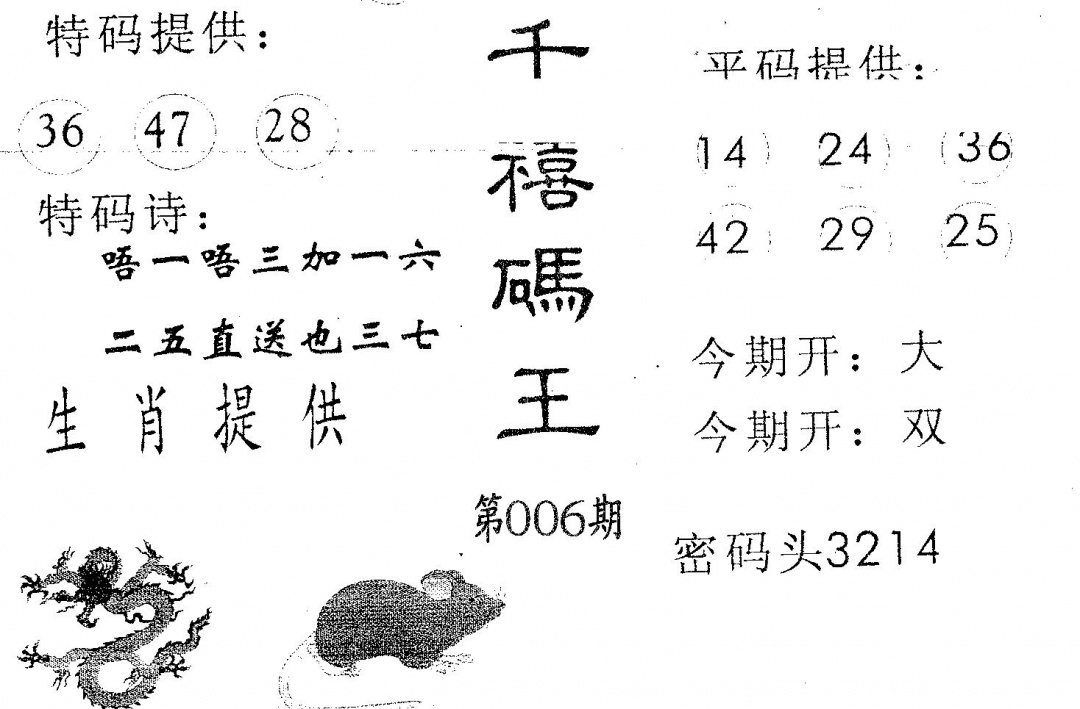 特码提供：
36 47 28
特码诗：
唔一唔三加一六
二五直送也三七
生肖提供
千禧碼王
第006期
平码提供：
14 24 36
42 29 25
今期开：大
今期开：双
密码头3214